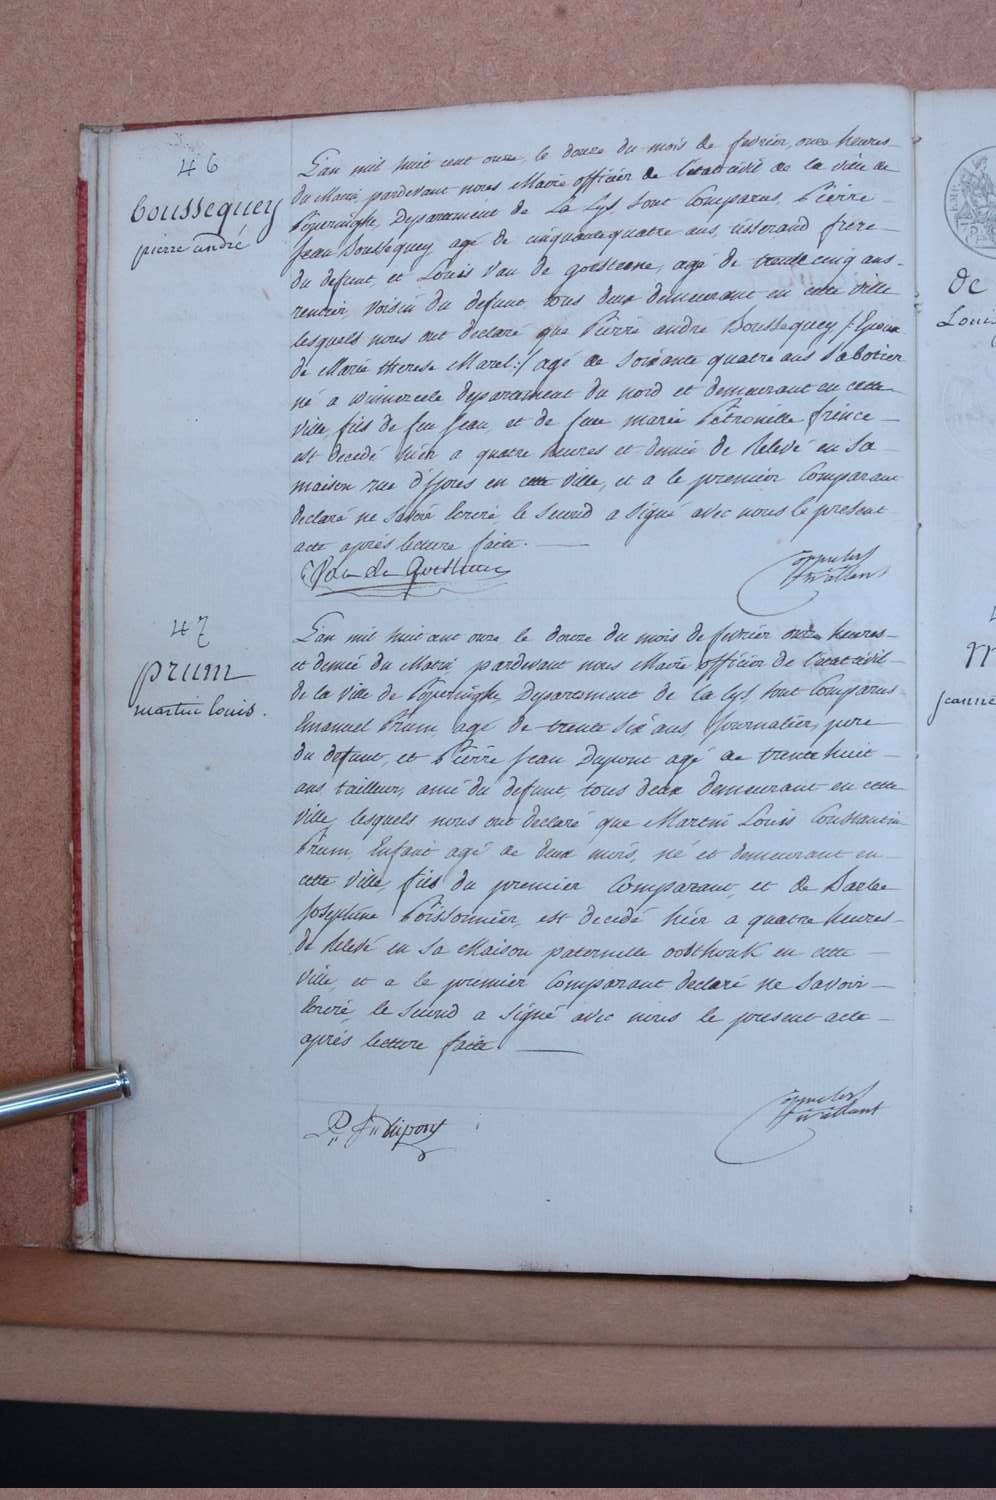 46
boussequey
pierre andré
L'an mil huit cent onze, le douze du mois de fevrier, onze heures
du Matin, pardevant nous Maire officier de l'etat civil de la ville de
Poperinghe, Departement de La Lys, sont Comparus, Pierre
Jean Boussequey agé de cinquante quatre ans, tisserand frere
du defunt, et Louis Van de goesteene, agé de trente cinq ans
rentier, Voisin du defunt tous deux demeurant en cette ville
lesquels nous ont declaré que Pierre andré Boussequey /: Epoux
de Marie therese Marel :/ agé de soixante quatre ans Sabotier
né a winnezeele departement du nord et demeurant en cette
ville, fils de feu Jean, et de feue marie Pétronelle frince
est decedé hier a quatre heures et demie de Relevé en sa
maison rue d'ypres en cette ville, et a le premier Comparant
declaré ne savoir Ecrire, le second a signé avec nous le present
acte après lecture faite.
Van de Goesteene
47
prum
martin louis.
L'an mil huit cent onze le douze du mois de fevrier onze heures
et demie du Matin, pardevant nous Maire officier de l'etat civil
de la Ville de Poperinghe, Departement de la Lys, sont Comparus
Emanuel Prum, agé de trente six ans, Journalier, pere
du defunt, et Pierre Jean Dupont agé de trente huit
ans tailleur, ami du defunt, tous deux demeurant en cette
ville, lesquels nous ont declaré que Martin Louis Constantin
Prum, Enfant agé de deux mois, né et demeurant en
cette Ville, fils du premier Comparant, et de Barbe
Josephine Poissonnier, est decedé hier a quatre heures
de Relevé en sa Maison paternelle oosthouk en cette
ville, et a le premier Comparant declaré ne savoir
Ecrire le second a signé avec nous le present acte
après lecture faite.
P: J: dupont
de
Louis
Jeanne